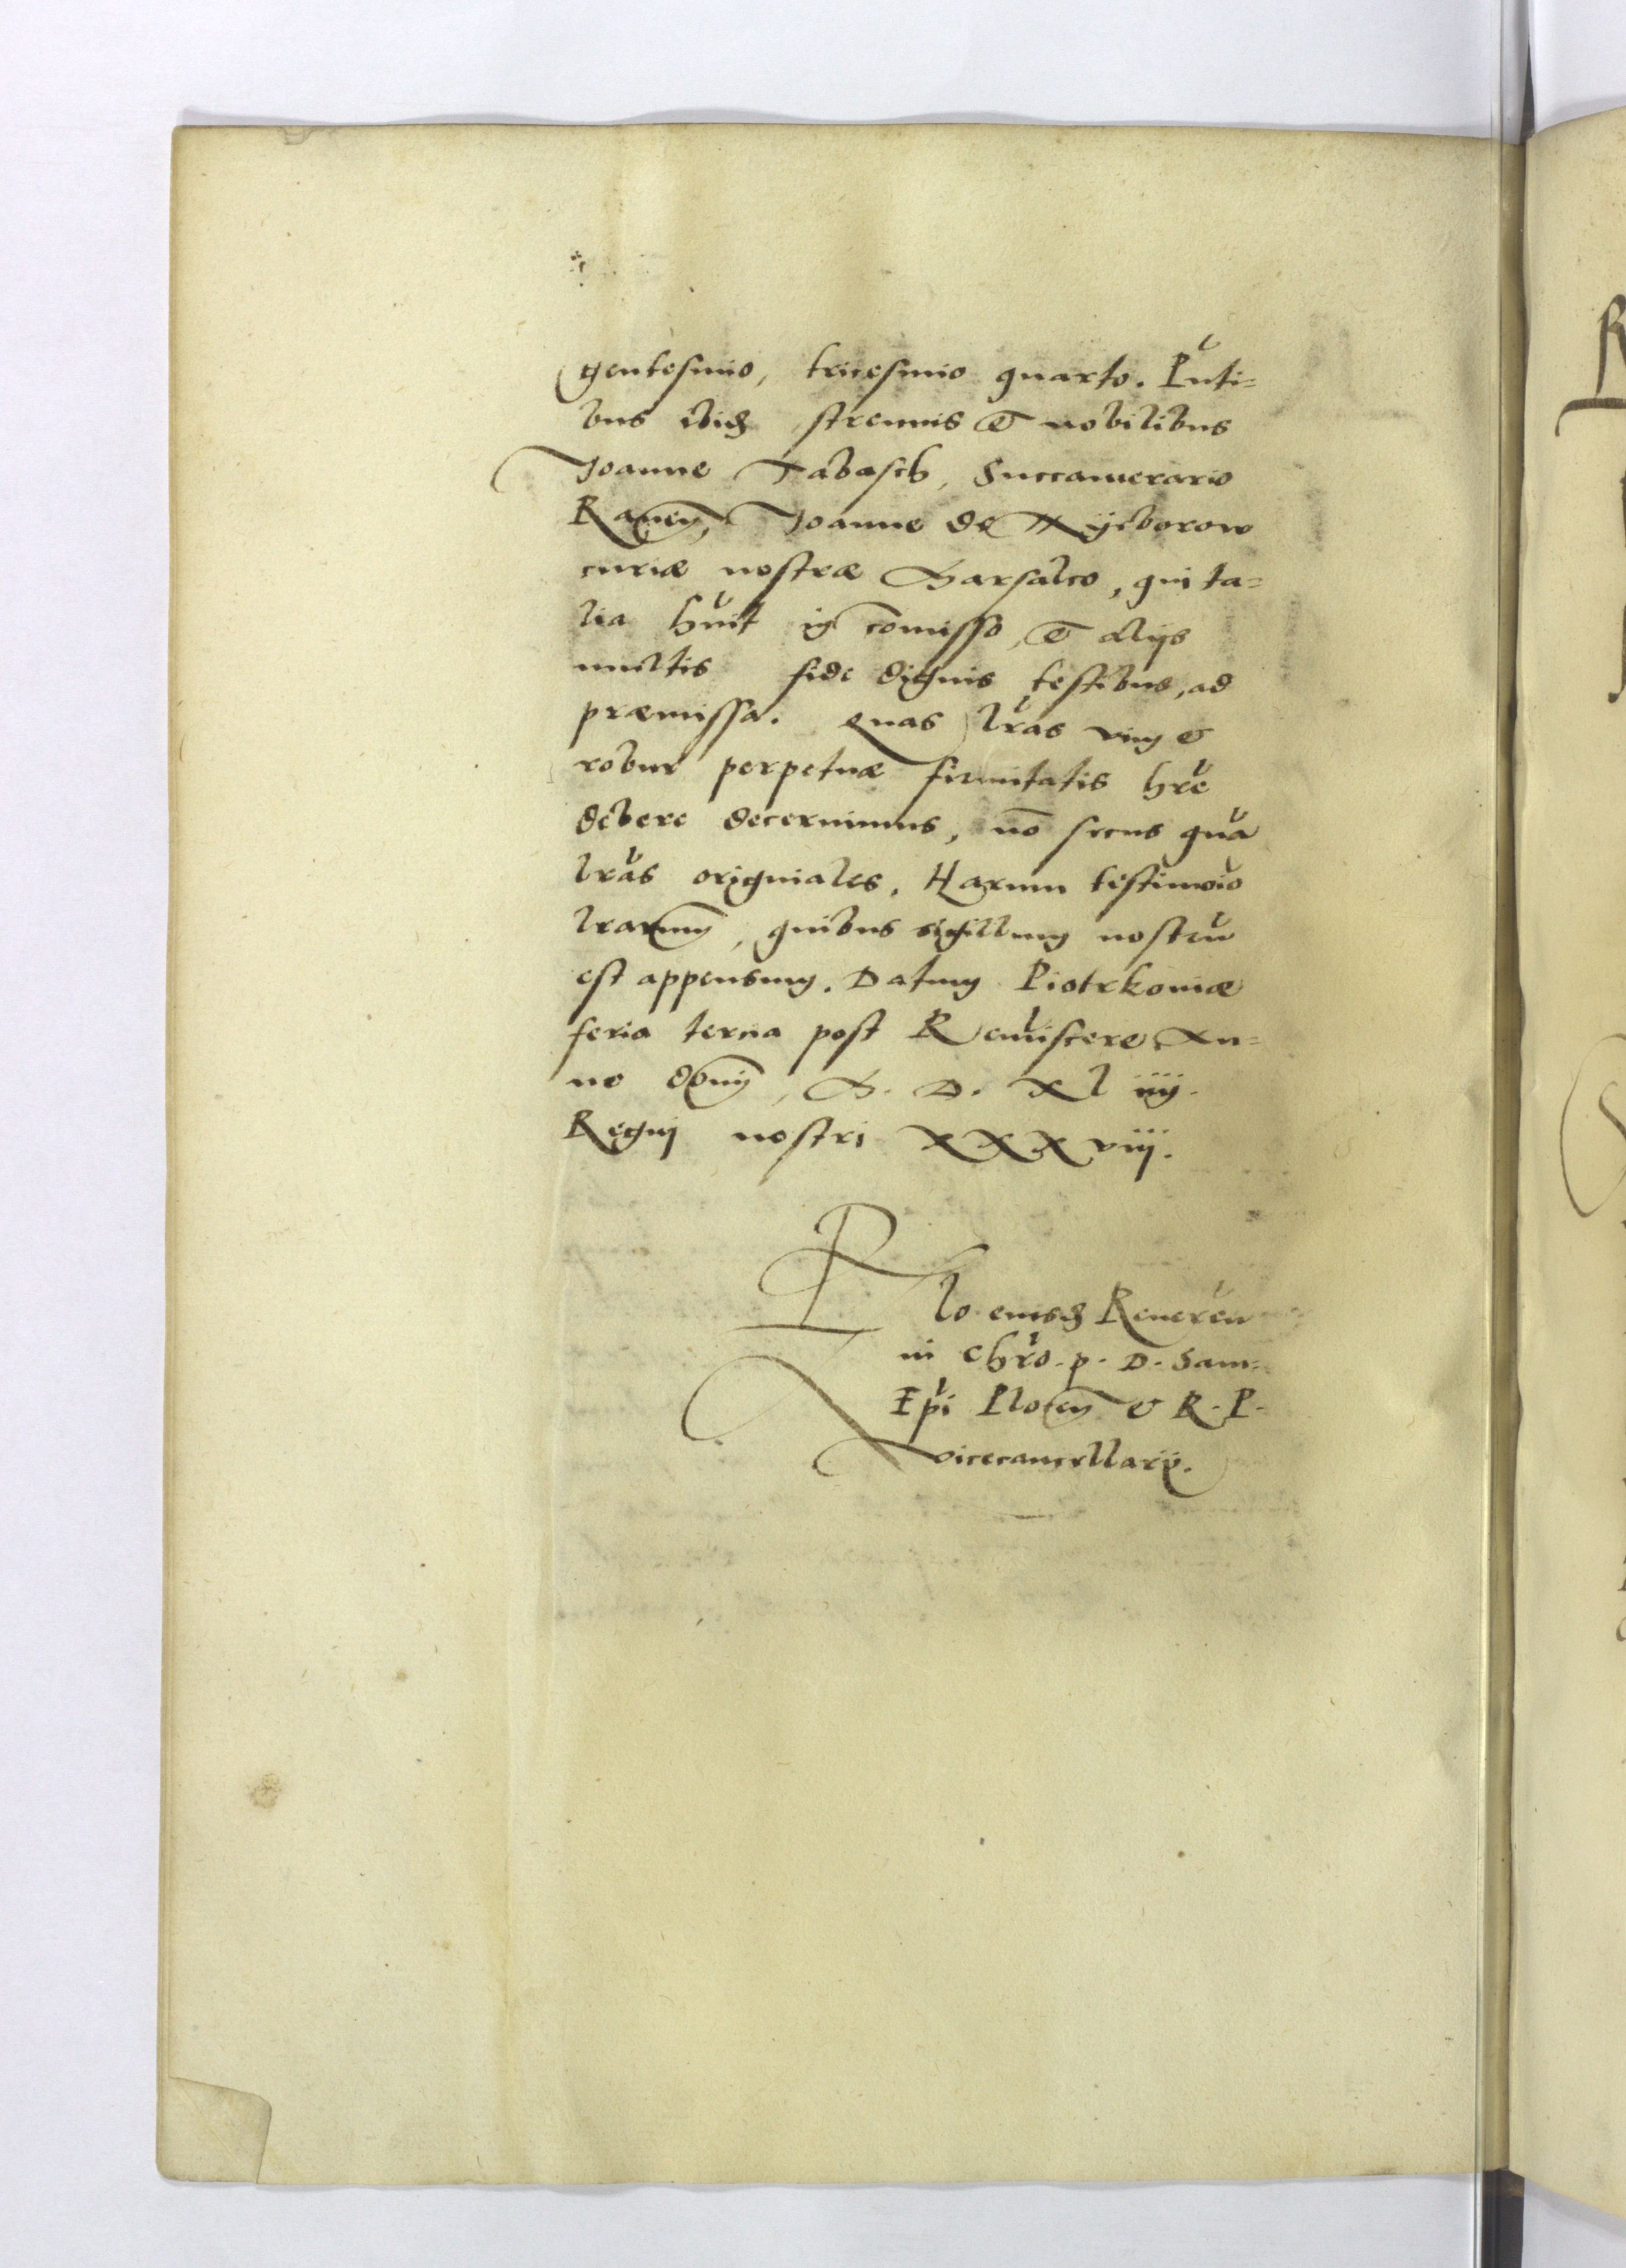 gentesimo, tricesimo quarto. Pñti=
bus ibidẽ strenuis et nobilibus
Joanne Tabasch, Succamerario
Rauen̄, Joanne de Wÿcborow
curiæ nostræ Marsalco, qui ta=
lia huit in com̄isso, et alijs
multis fide dignis testibus, ad
præmissa. Quas lr̃as vim et
robur perpetuæ firmitatis hr̃e
debere decernimus, nō secus quã
lr̃as originales. Harum testimoĩo
lrarum̃, quibus sigillum nostrũ
est appensum. Datum Piotrkoniæ
feria tercia post Remĩscere, An=
no domĩ, M. D. Xl iiij.
Regni nostri XXXviij.
Rlo eiusdẽ Reuereñ
in Chrõ. p. D. Sam.
Epĩ Plocen̄ et R. P.
vicecancellarij.